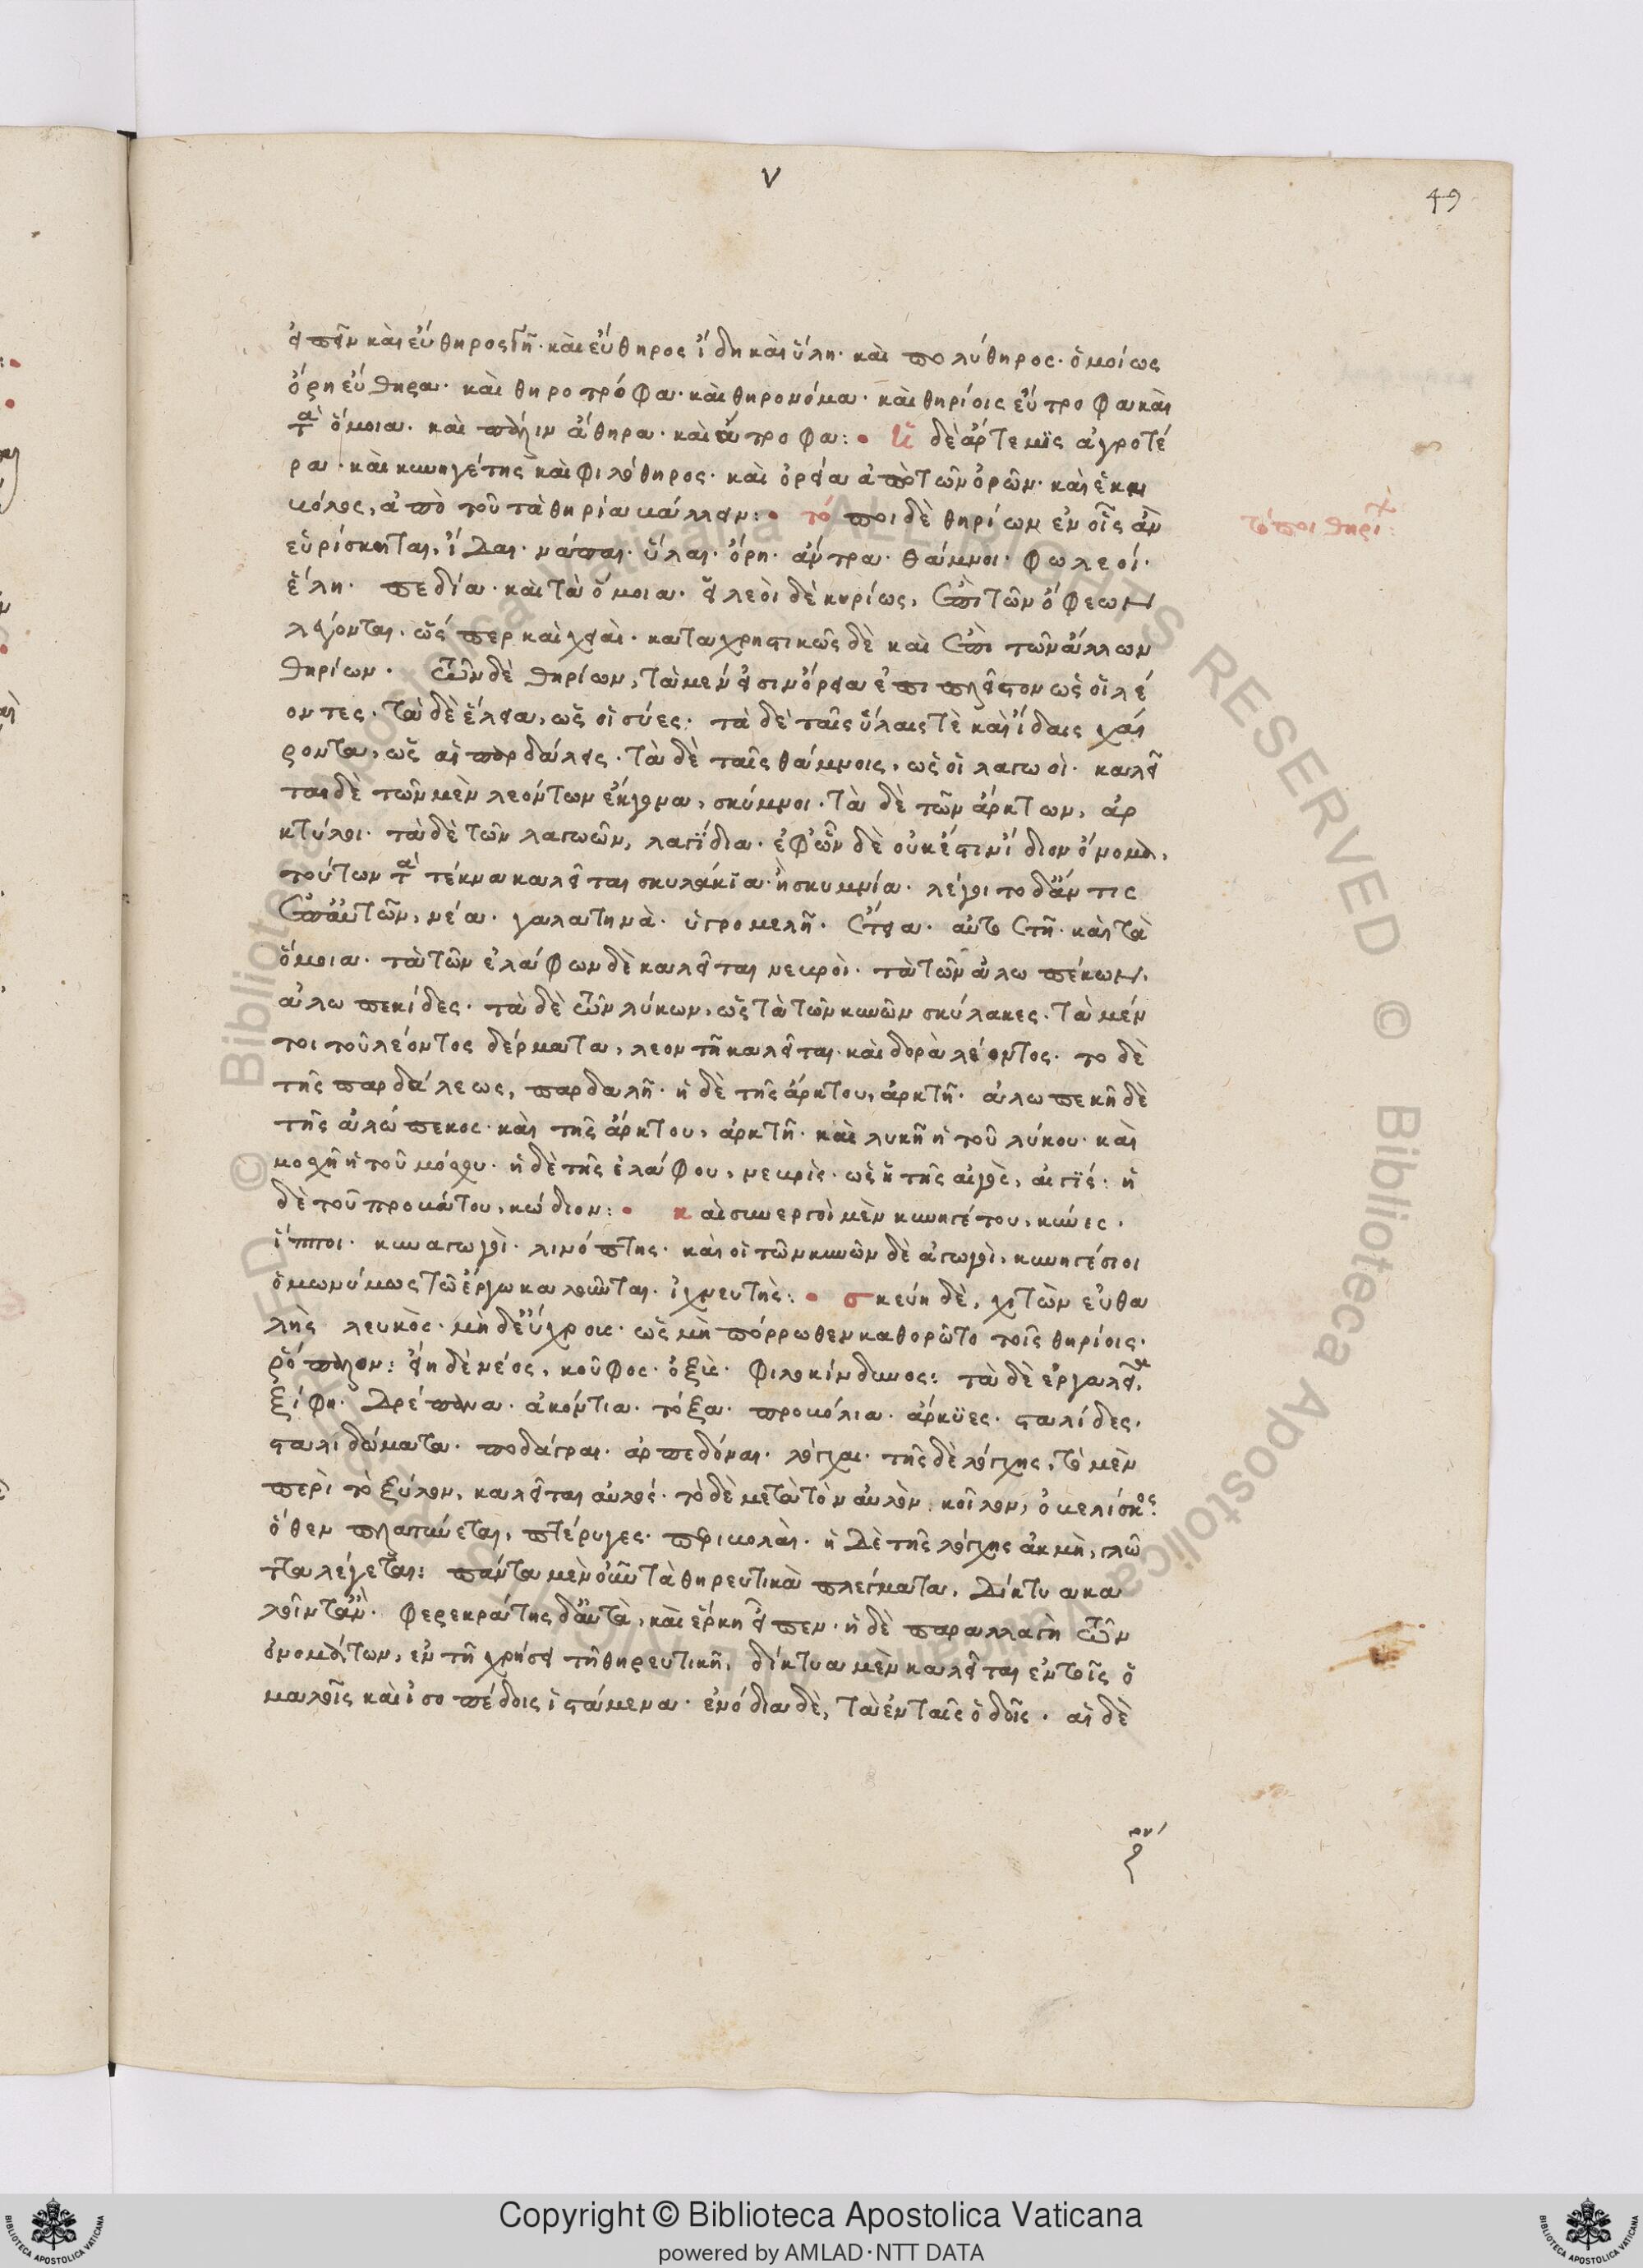 ν
49
εἰπεῖν καὶ εὔθηρος γῆ· καὶ εὔθηρος ἴδη καὶ ὕλη· καὶ πολύθηρος· ὁμοίως
ὄρη εὔθηρα· καὶ θηροτρόφα· καὶ θηρονόμα· καὶ θηρίοις εὔτροφα καὶ
τὰ ὅμοια· καὶ πάλιν ἄθηρα· καὶ ἄτροφα: ἡ δὲ ἄρτεμις ἀγροτέ
ρα· καὶ κυνηγέτης καὶ φιλόθηρος· καὶ ὀρεία ἀπὸ τῶν ὀρῶν· καὶ ἑκη
βόλος, ἀπὸ τοῦ τὰ θηρία βάλλειν: τόποι δὲ θηρίων ἐν οἷς ἂν
τόποι θηρί:
εὑρίσκηται, ἴδαι· νάπαι· ὗλαι· ὄρη· ἄντρα· θάμνοι· φωλεοί·
ἕλη· πεδία· καὶ τὰ ὅμοια· εἰλεοὶ δὲ κυρίως, ἐπὶ τῶν ὄφεων
λέγονται· ὥσπερ καὶ χειαὶ· καταχρηστικῶς δὲ καὶ ἐπὶ τῶν ἄλλων
θηρίων· τῶν δὲ θηρίων, τὰ μέν εἰσιν ὄρεια ἐπιπλεῖστον ὡς οἱ λέ
οντες· τὰ δὲ ἕλεια, ὡς οἱ σύες· τὰ δὲ ταῖς ὕλαις τὲ καὶ ἴδαις χαί
ροντα, ὡς αἱ παρδάλεις· τὰ δὲ ταῖς θάμνοις, ὡς οἱ λαγωοί· καλεῖ
ται δὲ τῶν μὲν λεόντων ἔκγονα, σκύμνοι· τὰ δὲ τῶν ἄρκτων, ἄρ
κτυλοι· τὰ δὲ τῶν λαγωῶν, λαγίδια· ἐφ' ὧν δὲ οὐκ ἔστιν ἴδιον ὄνομα,
τούτων τὰ τέκνα καλεῖται σκυλάκια· ἢ σκυμνία· λέγοιτο δ' ἄν τις
ἐπ' αὐτῶν, νέα· γαλαθηνὰ· ὑγρομελῆ· ἔτεια· αὐτοετῆ· καὶ τὰ
ὅμοια· τὰ τῶν ἐλάφων δὲ καλεῖται νεβροὶ· τὰ τῶν ἀλωπέκων,
ἀλωπεκίδες· τὰ δὲ τῶν λύκων, ὡς τὰ τῶν κυνῶν σκύλακες· τὰ μέν
τοι τοῦ λέοντος δέρματα, λεοντῆ καλεῖται· καὶ δορὰ λέοντος· το δὲ
τῆς παρδάλεως, παρδαλῆ· ἡ δὲ τῆς ἄρκτου, ἀρκτῆ· ἀλωπεκῆ δὲ
τῆς ἀλώπεκος· καὶ τῆς ἄρκτου, ἀρκτῆ· καὶ λυκῆ ἡ τοῦ λύκου· καὶ
μοσχῆ ἡ τοῦ μόσχου· ἡ δὲ τῆς ἐλάφου, νεβρὶς· ὡς ἡ τῆς αἰγὸς, αἰγίς: ἡ
δὲ τοῦ προβάτου, κώδιον: καὶ συνεργοὶ μὲν κυνηγέτου, κύνες·
ἵπποι· κυναγωγοὶ· λινόπτης· καὶ οἱ τῶν κυνῶν δὲ ἀγωγοὶ, κυνηγέσιοι
ὁμωνύμως τῶ ἔργω καλοῦνται· ἰχνευτὴς: σκεύη δὲ, χιτὼν εὐθα
λὴς λευκὸς· μὴ δ' εὔχρους· ὡς μὴ πόρρωθεν καθορῶτο τοῖς θηρίοις·
ῥόπαλον: εἴη δὲ νέος, κοῦφος· ὀξὺς· φιλοκίνδυνος: τὰ δὲ ἐργαλεῖα
ξίφη· δρέπανα· ἀκόντια· τόξα· προβόλια· ἄρκυες· σταλίδες·
σταλιδώματα· ποδάγραι· ἁρπεδόναι· λόγχαι· τῆς δὲ λόγχης, τὸ μὲν
περὶ τὸ ξύλον, καλεῖται αὐλός· τὸ δὲ μετὰ τὸν αὐλὸν κοῖλον, ὀβελίσκος:
ὅθεν πλατύνεται, πτέρυγες· περιβολαὶ· ἡ δὲ τῆς λόγχης ἀκμὴ, γλῶ
ττα λέγεται: πάντα μὲν οὖν τὰ θηρευτικὰ πλέγματα, δίκτυα κα
λοῖντ' ἄν· φερεκράτης δ' αὐτὰ, καὶ ἕρκη εἶπεν· ἡ δὲ παραλλαγὴ τῶν
ὀνομάτων, ἐν τῆ χρήσει τῆ θηρευτικῆ, δίκτυα μὲν καλεῖται ἐν τοῖς ὁ
μαλοῖς καὶ ἰσοπέδοις ἱστάμενα· ἐνόδια δὲ, τὰ ἐν ταῖς ὁδοῖς· αἱ δὲ